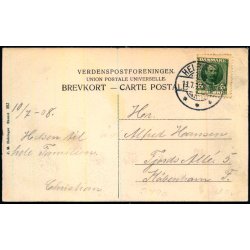 VERDENSPOSTFORENINGEN
UNION POSTALE UNIVERSELLE
BREVKORT — CARTE POSTALE
DANMARK
HEL
10/7-08.
Hilsen til
hele Familien
Christian
Hr.
Alfred Hansen
Fjords Allé 5
København F.